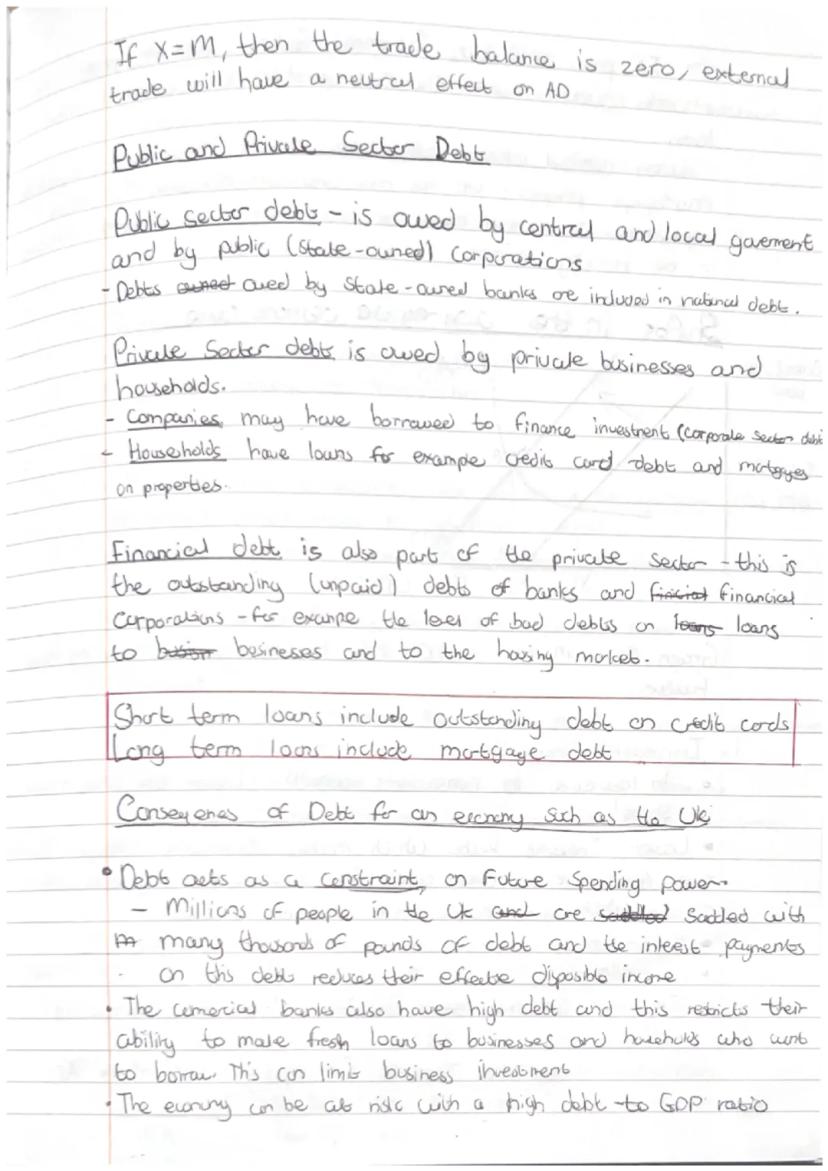 If X=M, then the trade balance is zero, external
trade will have a neutral effect on AD
Public and Private Sector Debt
Public sector debt - is owed by central and local goverment
and by public (state-owned) corporations
- Debts owned owed by State-owned banks are included in national debt.
Private Sector debts is owed by private businesses and
households.
- Companies may have borrowed to finance investment (corporate sector debt
- Households have loans for example credit card debt and mortgages
on properties.
Financial debt is also part of the private sector - this is
the outstanding (unpaid) debts of banks and financial
corporations - for example the level of bad debts on loans loans
to businesses and to the housing market.
Short term loans include outstanding debt on credit cards
Long term loans include mortgage debt
Consequences of Debt for an economy such as the UK
• Debt acts as a constraint on future spending power.
- Millions of people in the UK and are saddled saddled with
many thousands of pounds of debt and the interest payments
on this debt reduces their effective disposible income
• The comercial banks also have high debt and this restricts their
ability to make fresh loans to businesses and households who want
to borrow. This can limit business investment
• The economy can be at risk with a high debt-to GDP ratio